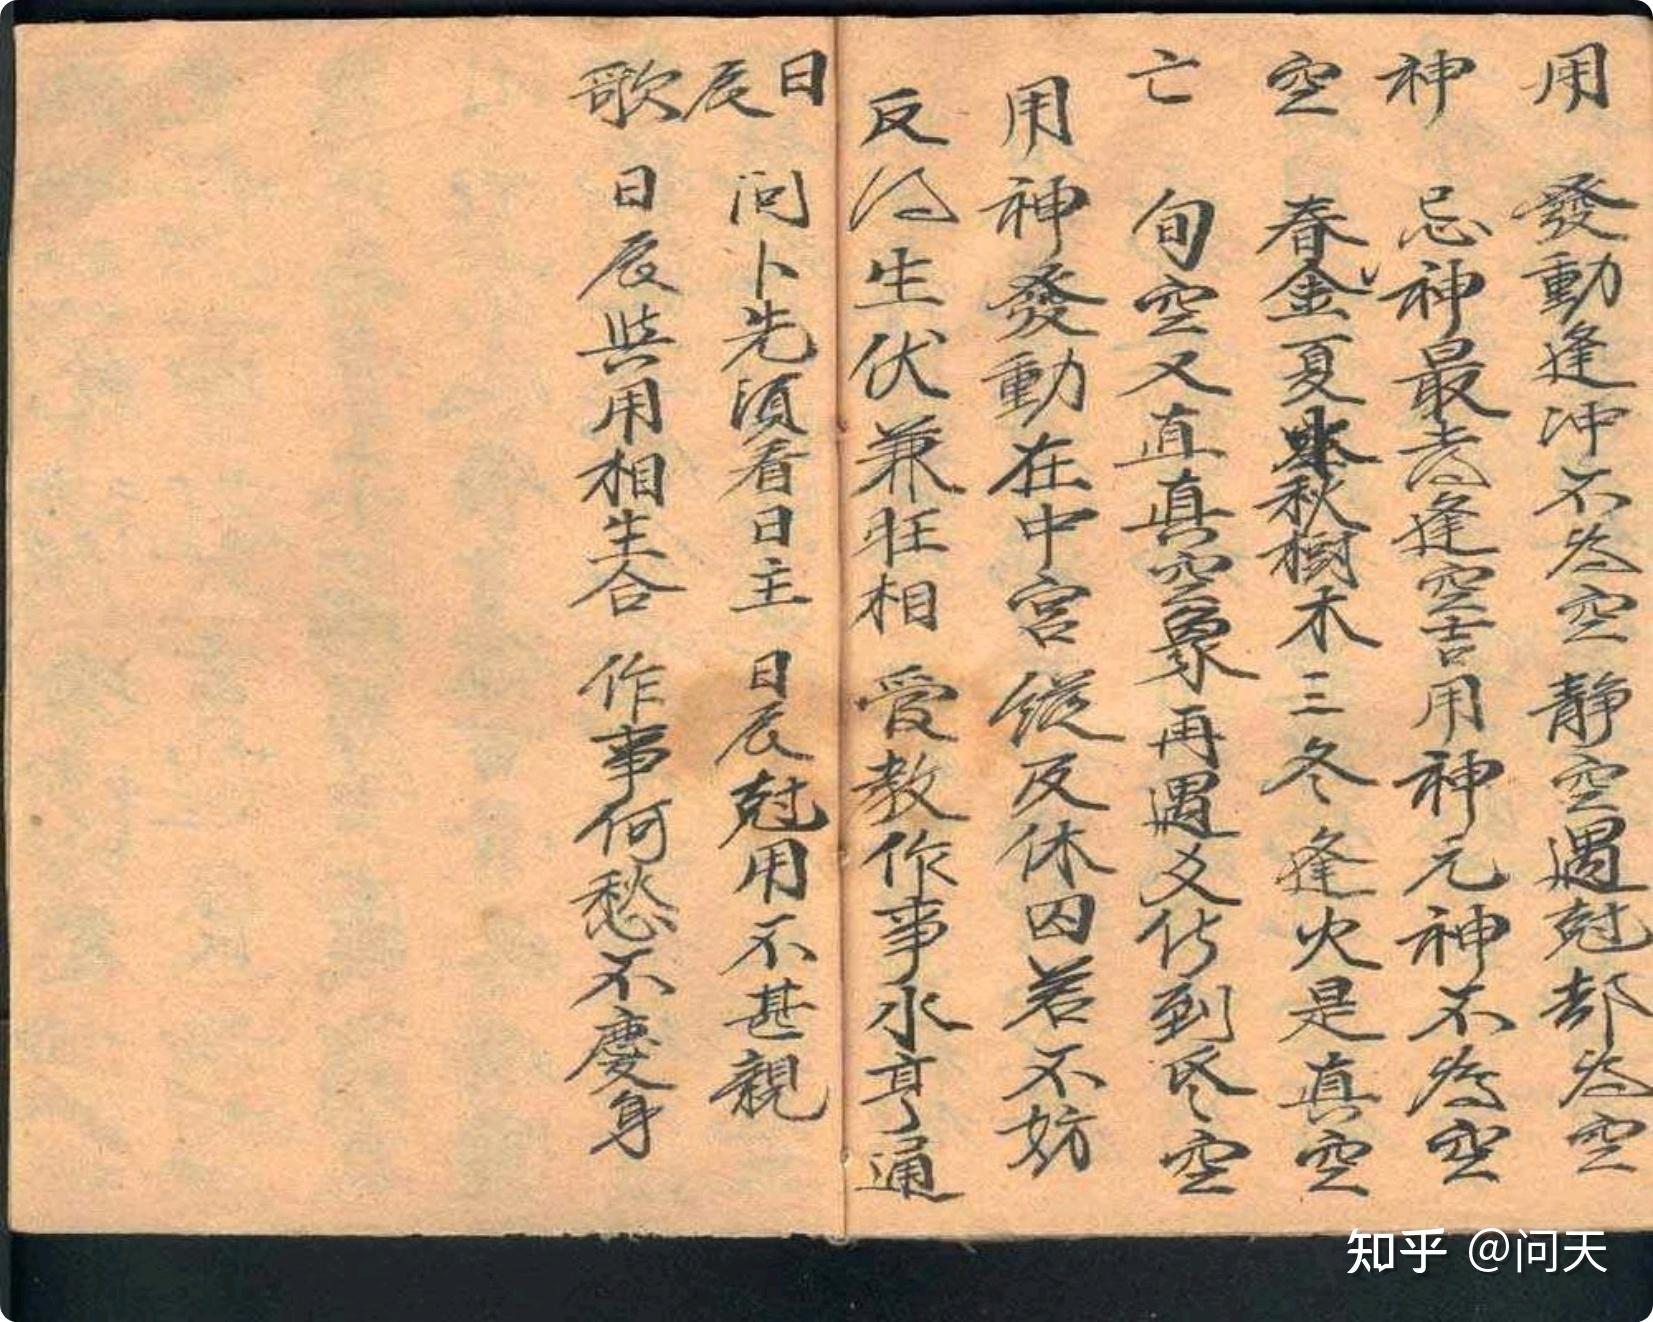 用 發動逢沖不為空 靜空遇尅却為空
神 忌神最喜逢空吉 用神元神不為空
空 春金夏水秋樹木 三冬逢火是真空
亡 旬空又直真空象 再遇爻化到底空
用神發動在中宮 縱反休囚若不妨
反得生伏兼旺相 愛教作事永亨通
日辰 问卜先須看日主 日辰尅用不甚親
歌 日辰與用相生合 作事何愁不慶身
知乎 @问天